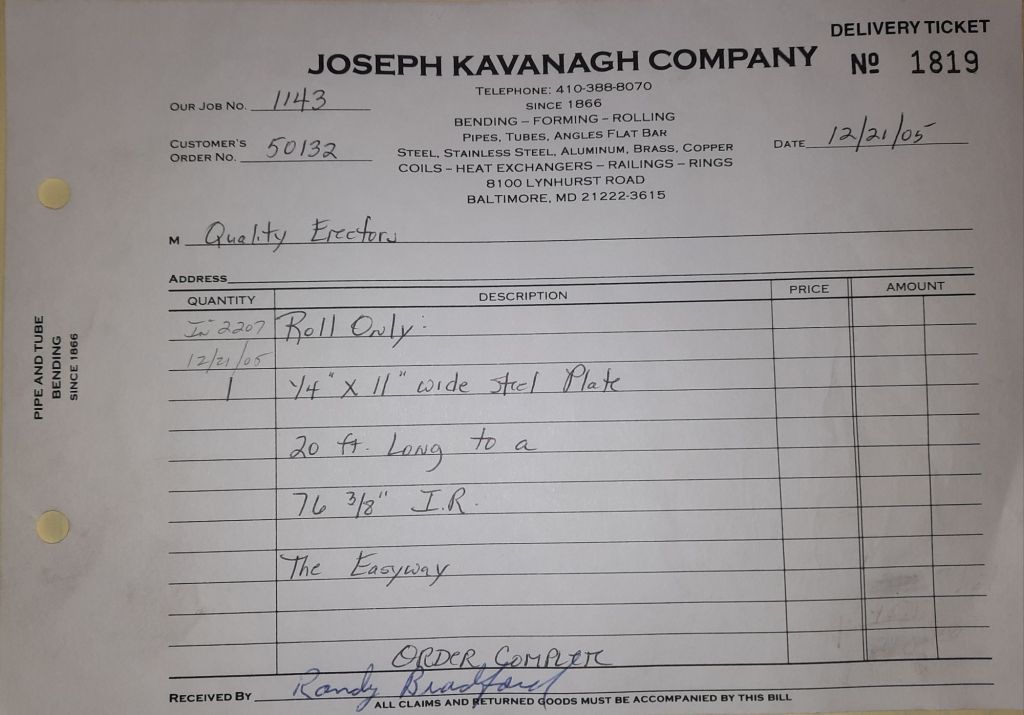 DELIVERY TICKET
JOSEPH KAVANAGH COMPANY
Nº 1819
TELEPHONE: 410-388-8070
SINCE 1866
BENDING – FORMING – ROLLING
PIPES, TUBES, ANGLES FLAT BAR
STEEL, STAINLESS STEEL, ALUMINUM, BRASS, COPPER
COILS – HEAT EXCHANGERS – RAILINGS – RINGS
8100 LYNHURST ROAD
BALTIMORE, MD 21222-3615
OUR JOB NO. 1143
CUSTOMER'S
ORDER NO. 50132
DATE 12/21/05
M Quality Erectors
ADDRESS
QUANTITY DESCRIPTION PRICE AMOUNT
In 2207 Roll Only:
12/21/05
1 1/4" X 11" wide steel Plate
20 ft. Long to a
76 3/8" I.R.
The Easyway
ORDER COMPLETE
RECEIVED BY Randy Bradford
ALL CLAIMS AND RETURNED GOODS MUST BE ACCOMPANIED BY THIS BILL
PIPE AND TUBE
BENDING
SINCE 1866